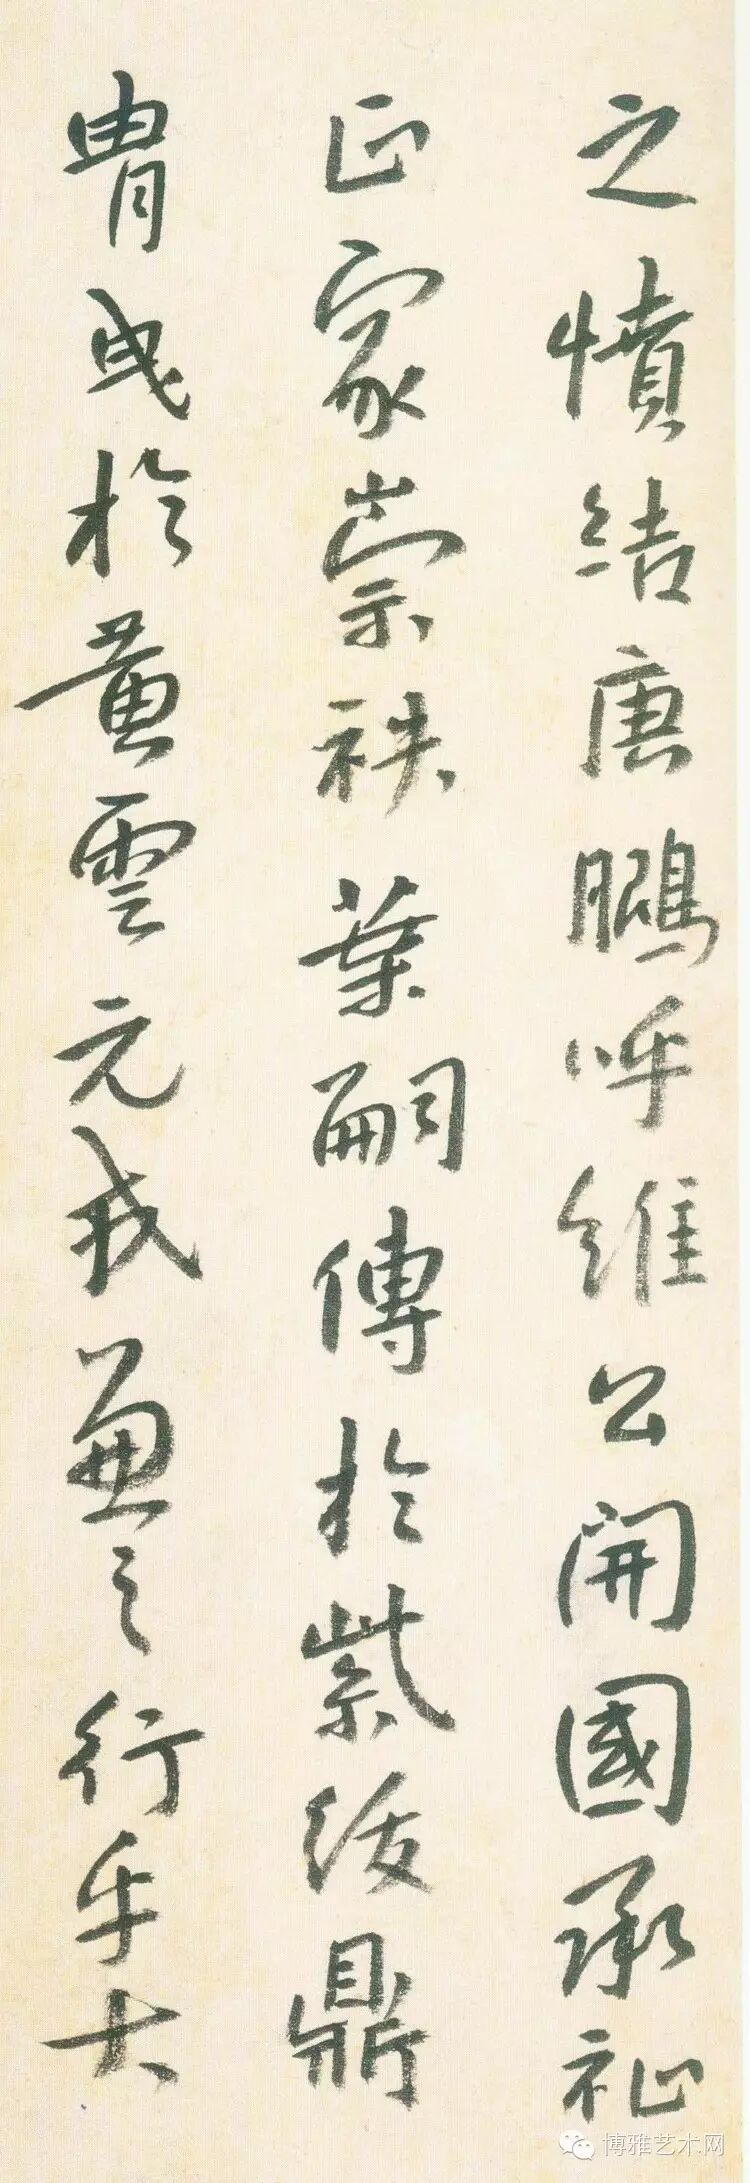 之憤結庚鵩呼維公開國承祉
正家崇袟葉嗣傳於紫綬鼎
胄曳於黃雲元戎之行乎大
博雅艺术网